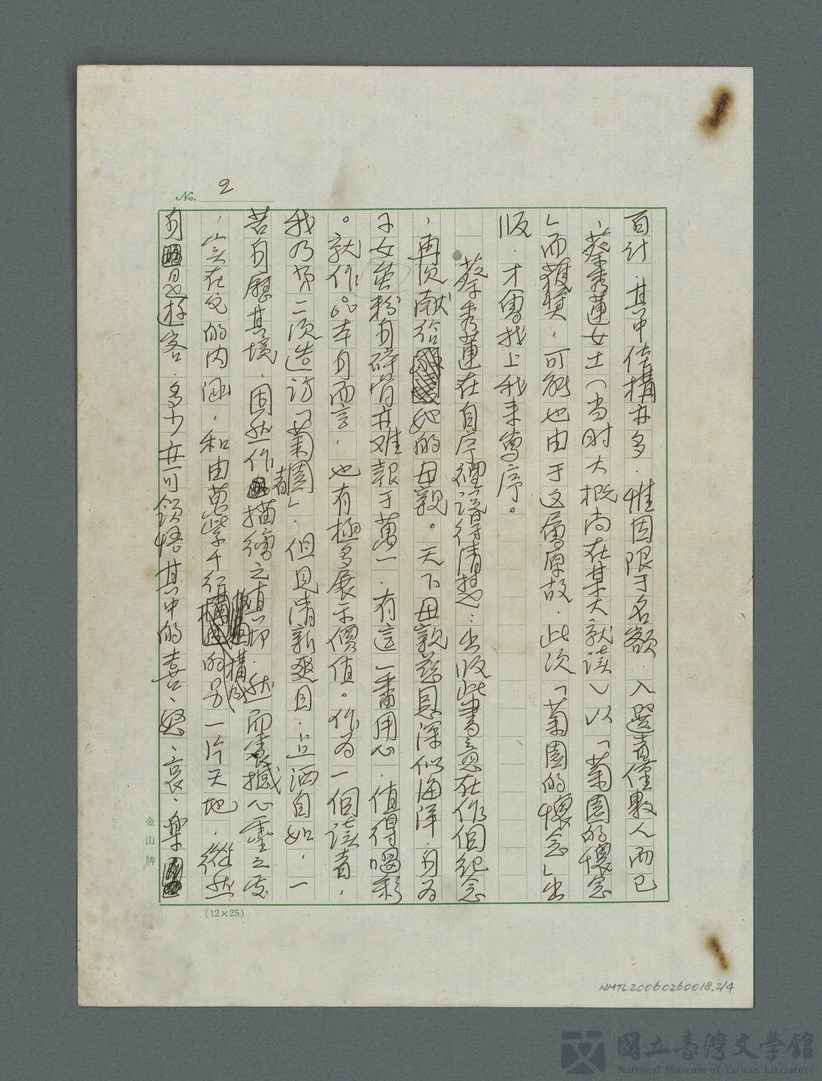 No. 2
百計,其中佳構亦多,惟因限于名額,入選者僅數人而已
,蔡秀蓮女士(当时大概尚在某大就读)以「菊園的懷念
」而獲獎,可能也由于这層原故,此次「菊園的懷念」出
版,才會找上我来寫序。
蔡秀蓮在自序裡說得清楚:出版此書意在作個纪念
,再倶献给她的母親。天下母親慈恩深似海洋,身为
子女虽粉身碎骨亦难報于萬一,有這一番用心,值得喝彩
。就作品本身而言,也有極多展示價值。作为一個读者,
我乃夯二次造访「菊園」,但见清新爽目,洒自如,一
若身歷其境,固然作者描繪之値,然而震撼心靈之處
,实在它的内涵,和由萬紫千行構成的另一片天地,縱然
身是遊客,多少亦可領悟其中的喜、怒、哀、樂
金山牌
(12×25)
NMTL20060260018.2/4
國立臺灣文學館
National Museum of Taiwan Literature